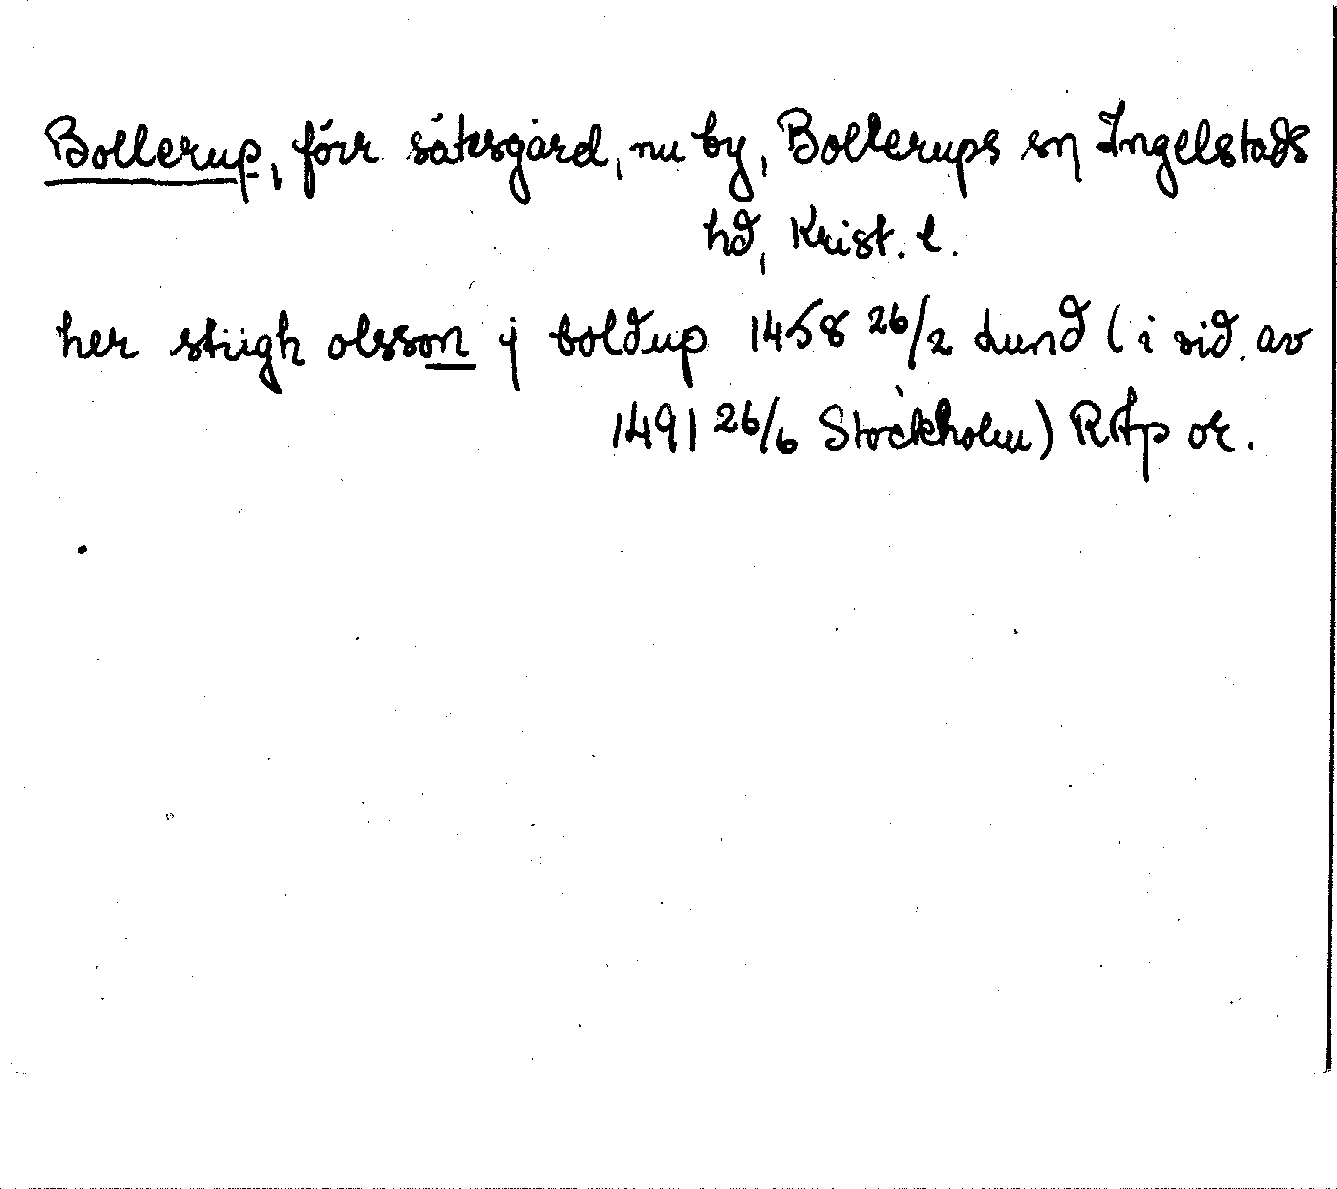 Bollerup, förr sätesgård, nu by, Bollerups sn Ingelstads
hd, Krist. l.
her stiigh olsson j boldup 1458 26/2 Lund (i vid. av
1491 26/6 Stockholm) RAp or.